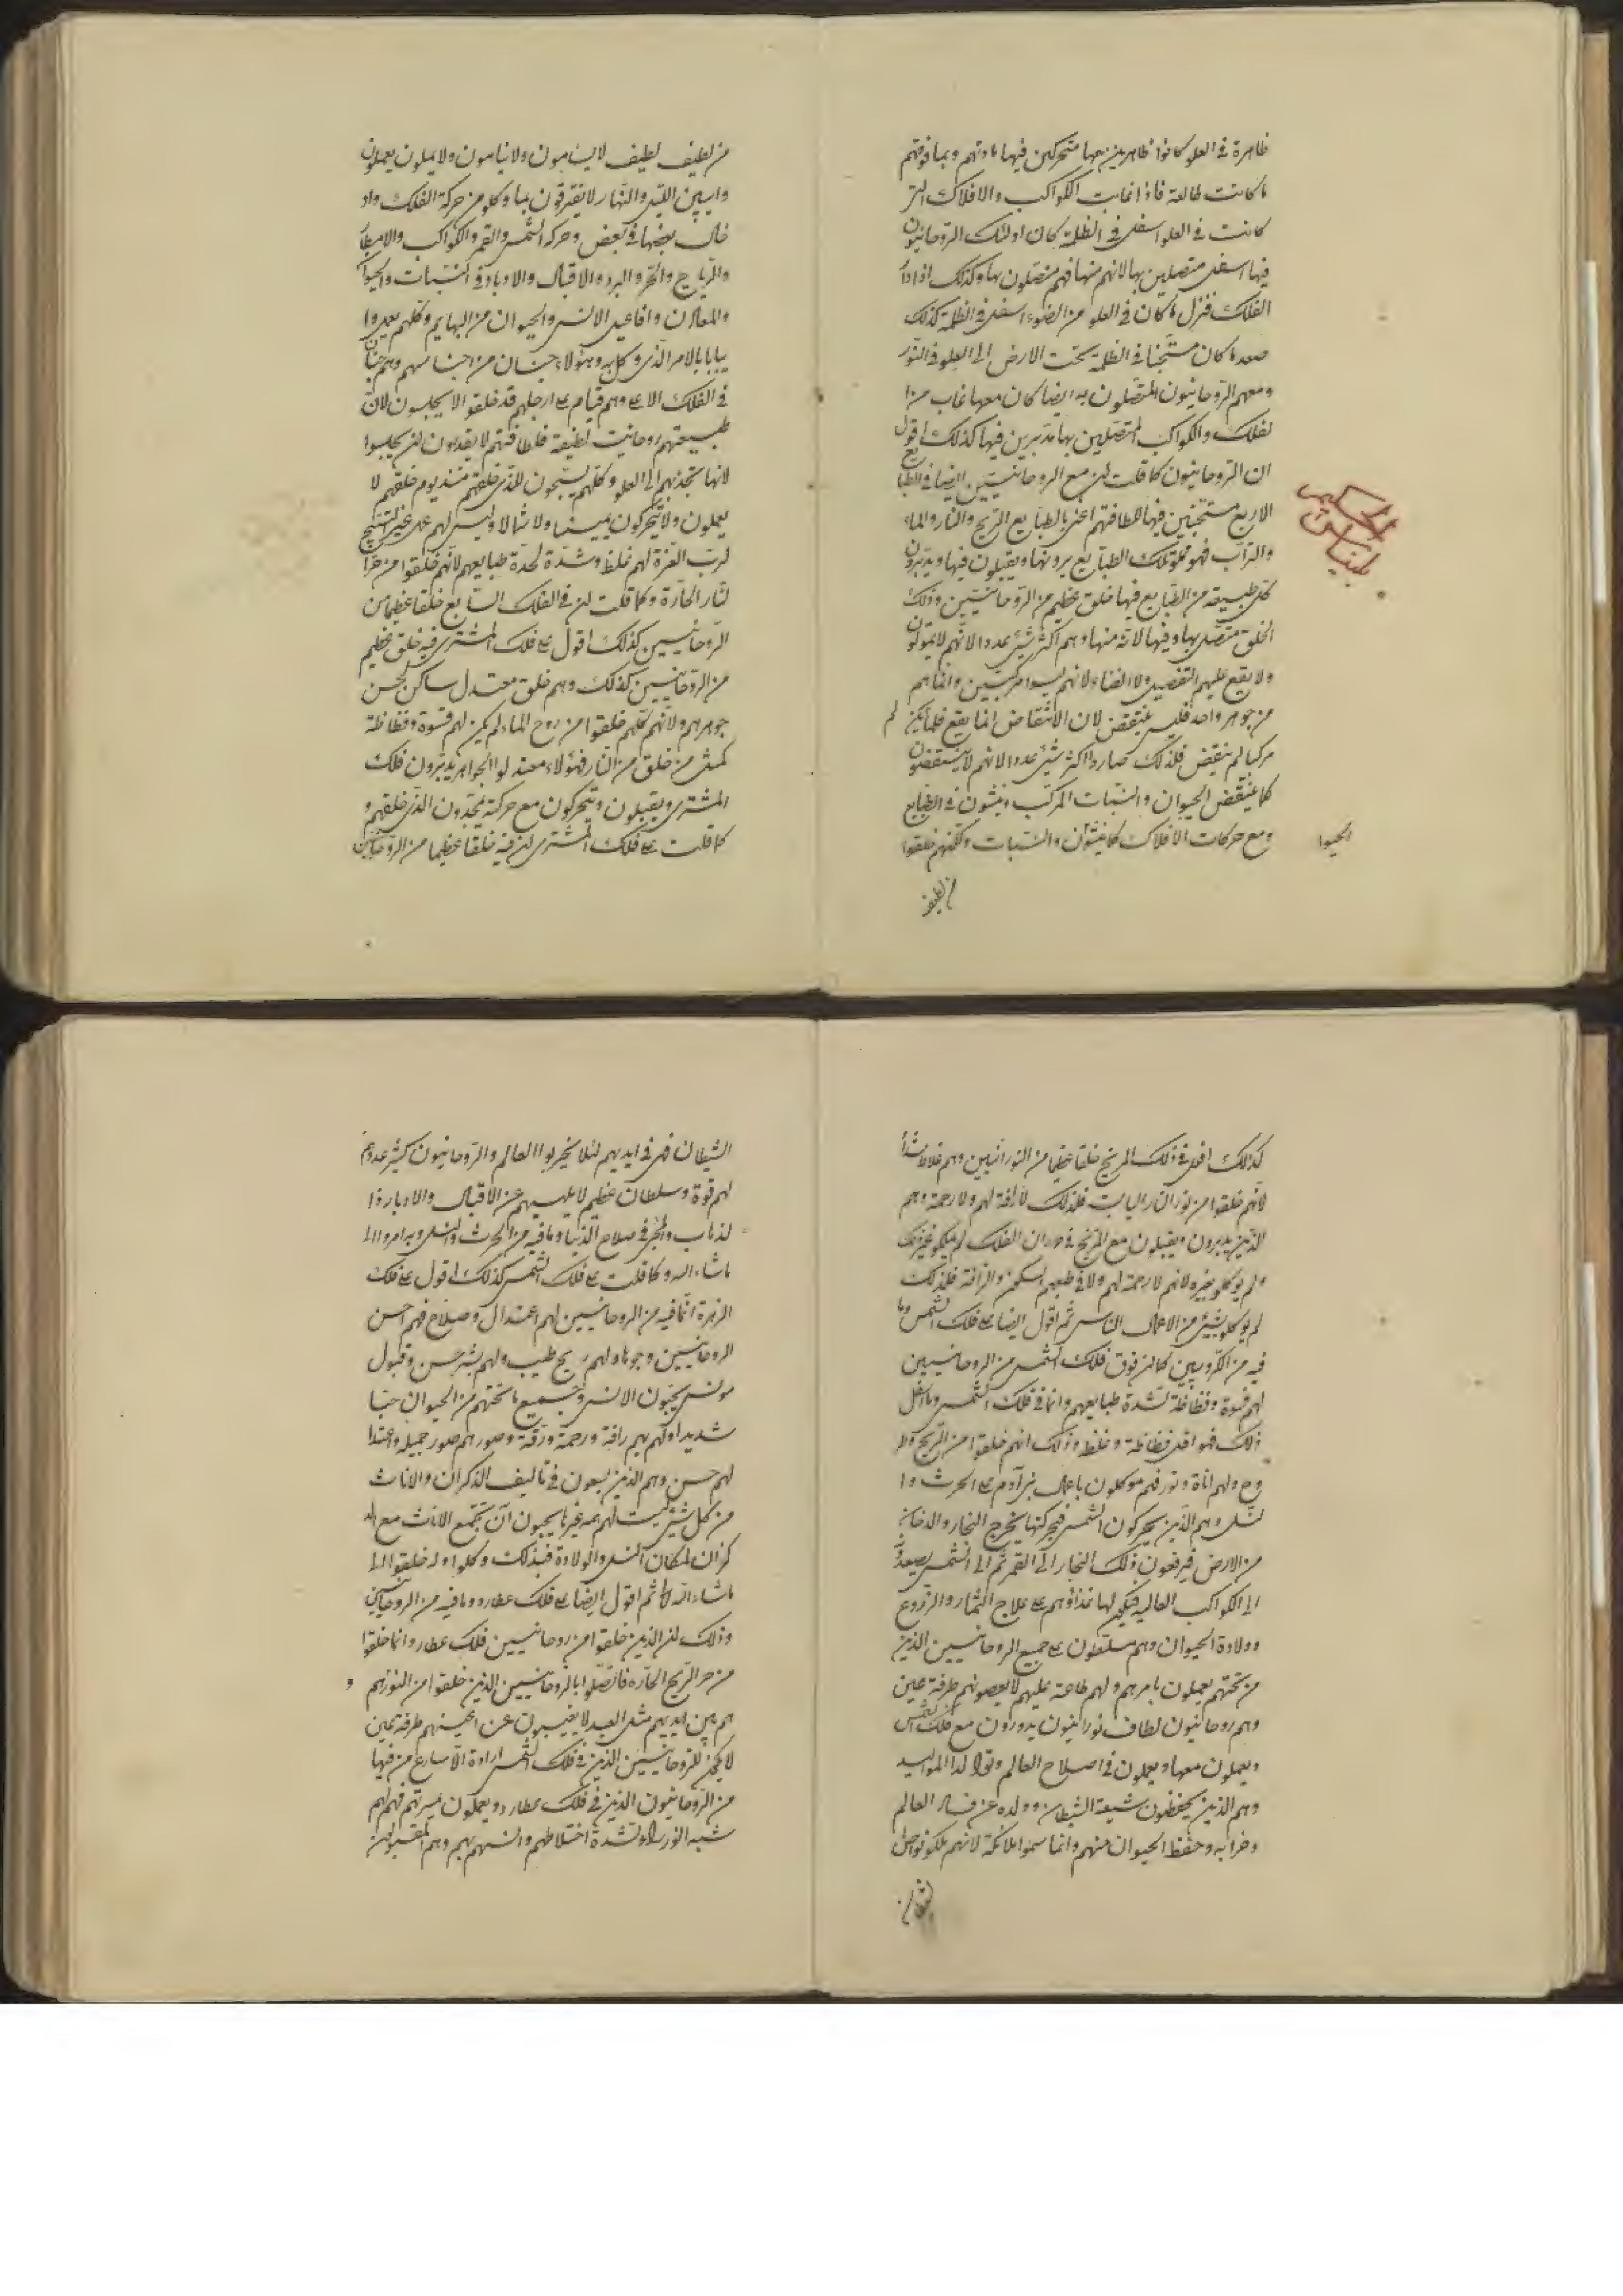 ظاهرة في العلو كانوا ظاهرين معها متحركين فيها مادتهم وبما قوتهم
ما كانت طالعة فاذا غابت الكواكب والافلاك التي
كانت في العلو اسفل في الظلمة كان اولئك الروحانيون
فيها اسفل متصلين بها لانهم منها فهم متصلون بها وكذلك اذا دا
الفلك فنزل ما كان في العلو من الضوء اسفل في الظلمة كذلك
صعد ما كان مستجنا في الظلمة تحت الارض الى العلو في النور
ومعهم الروحانيون المتصلون به ايضا كان معها غاب من ا
لفلك والكواكب المتصلين بها مدبرين فيها كذلك اقول
ان الروحانيون كما قلت لن مع الروحانيين ايضا في الطبايع
الاربع مستجنين فيها للطافتهم اعنى بالطبايع الريح والنار والماء
والتراب فهو تلك الطبايع يرونها ويقبلون فيها ويدبرون
كل طبيعة من الطبايع فيها خلق عظيم من الروحانيين وذلك
الخلق متصل بها وفيها لانه منها وهم اكثر شئ عددا لانهم لا يموتون
ولا يقع عليهم التفصيل ولا الفناء لانهم ليسوا مركبين وانما هم
من جوهر واحد فليس ينتقض لان الانتقاض انما يقع فلما لم يكن
مركبا لم ينقض فلذلك صاروا اكثر شئ عددا لانهم لا ينتقضون
كما ينتقض الحيوان والنبات المركب وينشون في الطبايع
ومع حركات الافلاك كما ينشون والنبات ولكنهم خلقوا
الحيوا
من لطيف
الحكيم
بليناس
من لطيف لطيف لا ينامون ولا يميلون يعملون
دايبين الليل والنهار لا يفترقون بما وكلو من حركة الفلك واد
خال بعضها في بعض وحركة الشمس والقمر والكواكب والامطا
والرياح والحر والبرد والاقبال والادبار في النبات والحيوا
والمعادن وافاعيل الانس والحيوان من البهايم وكلهم
بالامر الذي وكل به وهؤلاء
في الفلك الاعلى وهم قيام على ارجلهم قد خلقوا لا يجلسون لان
طبيعتهم روحانية لطيفة فلطافتهم لا يقدرون لن يجلسوا
لانها تجذبهم الى العلو وكلهم يسبحون للذي خلقهم منذ يوم خلقهم لا
يعملون ولا يتحركون يمينا ولا شمالا وليس لهم عمل غير التسبيح
لرب العزة لهم غلظ وشدة لحدة طبايعهم لانهم خلقوا من حر ا
لنار الحارة وكما قلت لن في الفلك السابع خلقا عظيما من
الروحانيين كذلك اقول على فلك المشتري فيه خلق عظيم
من الروحانيين كذلك وهم خلق معتدل ساكن لحسن
جوهرهم ولانهم كلهم خلقوا من روح الماء لم يكن لهم قسوة وفظاظة
كمثل من خلق من النار فهؤلاء معتدلوا الجواهر يدبرون فلك
المشتري ويقبلون ويتحركون مع حركته يمجدون الذي خلقهم و
كما قلت على فلك المشتري لن فيه خلقا عظيما من الروحانيين
كذلك اقول في فلك المريخ خلقا عظيما من النورانيين وهم غلاظ شدا
لانهم خلقوا من نور النار اليابسة فلذلك لا رافة لهم ولا رحمة وهم
الذين يدبرون ويقبلون مع المريخ في دوران الفلك لم يكلو غير ذلك
ولم يوكلو بغيره لانهم لا رحمة لهم ولا في طبعهم السكون والرافة فلذلك
لم يوكلو بشئ من الاعمال الناس ثم اقول ايضا على فلك الشمس وما
فيه من الكروبيين كما لن فوق فلك الشمس من الروحانيين
لهم قسوة وفظاظة لشدة طبايعهم وانما في فلك الشمس وما اسفل
ذلك فهو اقل فظاظة وغلظ وذلك انهم خلقوا من الريح والر
وح ولهم اناة ونور فهم موكلون باعمال بني آدم على الحرث وا
لنسل وهم الذين يحركون الشمس فبحركتها يخرج البخار والدخان
من الارض فيرفعون ذلك البخار الى القمر ثم الى الشمس يصعد
الى الكواكب العالية فيكون لها غذاؤهم على علاج الثمار والزروع
وولادة الحيوان وهم مسلطون على جميع الروحانيين الذين
من تحتهم يعملون بامرهم ولهم طاعة عليهم لا يعصونهم طرفة عين
وهم روحانيون لطاف نورانيون يدورون مع فلك الشمس
ويعملون معها ويعملون في اصلاح العالم وتوالد المواليد
وهم الذين يحفظون شيعة الشيطان وولده عن فساد العالم
وخرابه وحفظ الحيوان منهم وانما سموا ملائكة لانهم ملكو نواصي
الشيطان
الشيطان فهي في ايديهم لئلا يخربوا العالم والروحانيون كثير عددهم
لهم قوة وسلطان عظيم لا يلهيهم عن الاقبال والادبار وا
لذهاب والمجئ في صلاح الدنيا وما فيه من الحرث والنسل وبه امروا الى
ما شاء الله وكما قلت على فلك الشمس كذلك اقول على فلك
الزهرة انما فيه من الروحانيين لهم اعتدال وصلاح فهم احسن
الروحانيين وجوها ولهم ريح طيب ولهم بشر حسن وقبول
مونس يحبون الانس وجميع ما تحتهم من الحيوان حبا
شديدا ولهم بهم رافة ورحمة ورقة وصورهم صور جميلة واعتدا
لهم حسن وهم الذين يسعون في تاليف الذكران والاناث
من كل شئ ليست لهم همة غيرها يحبون ان تجتمع الاناث مع الذ
كران لمكان النسل والولادة فبذلك وكلوا وله خلقوا الى
ما شاء الله ثم اقول ايضا على فلك عطارد وما فيه من الروحانيين
وذلك لن الذين خلقوا من روحانيين فلك عطارد انما خلقوا
من حر الريح الحارة فاتصلوا بالروحانيين الذين خلقوا من النور هم و
هم بين ايديهم مثل العبيد لا يغيبون عن اعينهم طرفة عين
لا يكون للروحانيين الذين في فلك الشمس ارادة الا سارع من فيها
من الروحانيون الذين في فلك عطارد ويعملون بمسرتهم فهم لهم
شبه النور لشدة اختلاطهم وانسهم بهم وهم المقبولين